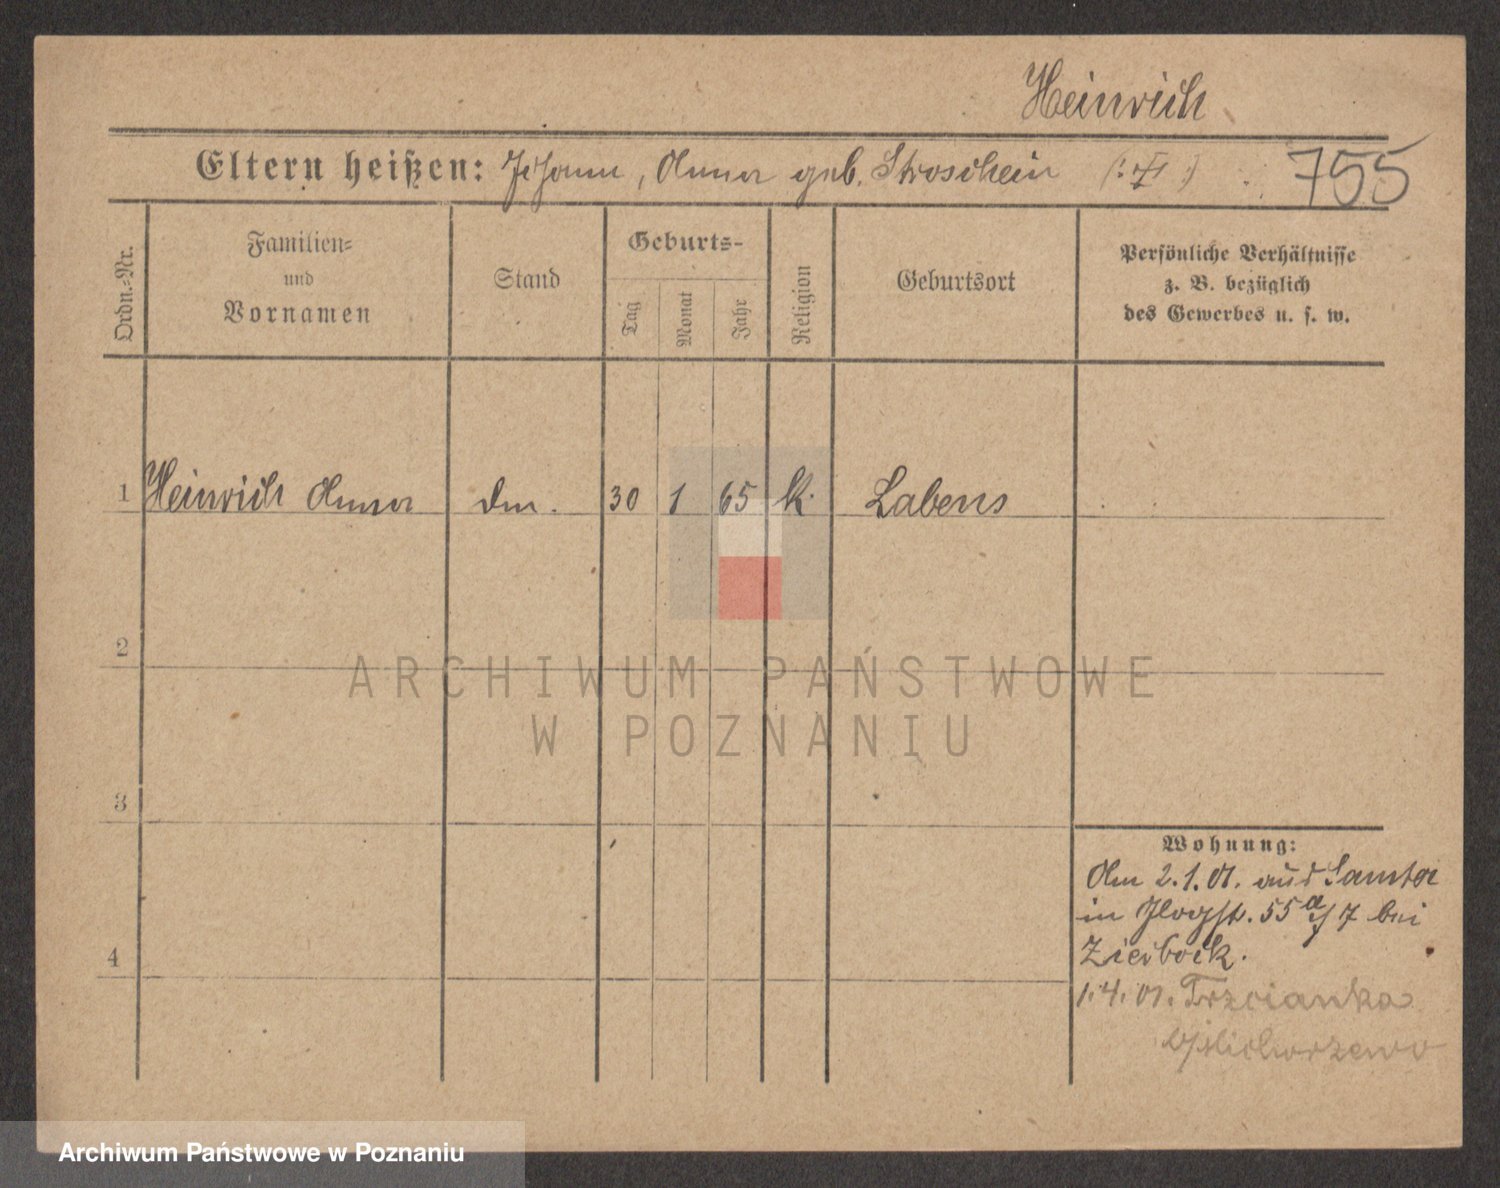 Heinrich
Eltern heißen: Johann, Anna geb. Stroschein 755
Ordn.-Nr.
Familien-
und
Vornamen
Stand
Geburts-
Tag
Monat
Jahr
Religion
Geburtsort
Persönliche Verhältnisse
z. B. bezüglich
des Gewerbes u. s. w.
1 Heinrich Anna 30 1 65 k. Labens
2
3
4
Wohnung:
Am 2.1.01. aus Samter
in 55 a/7 bei
Zierbock.
1.4.01. Trzcianka
ARCHIWUM PAŃSTWOWE
W POZNANIU
Archiwum Państwowe w Poznaniu